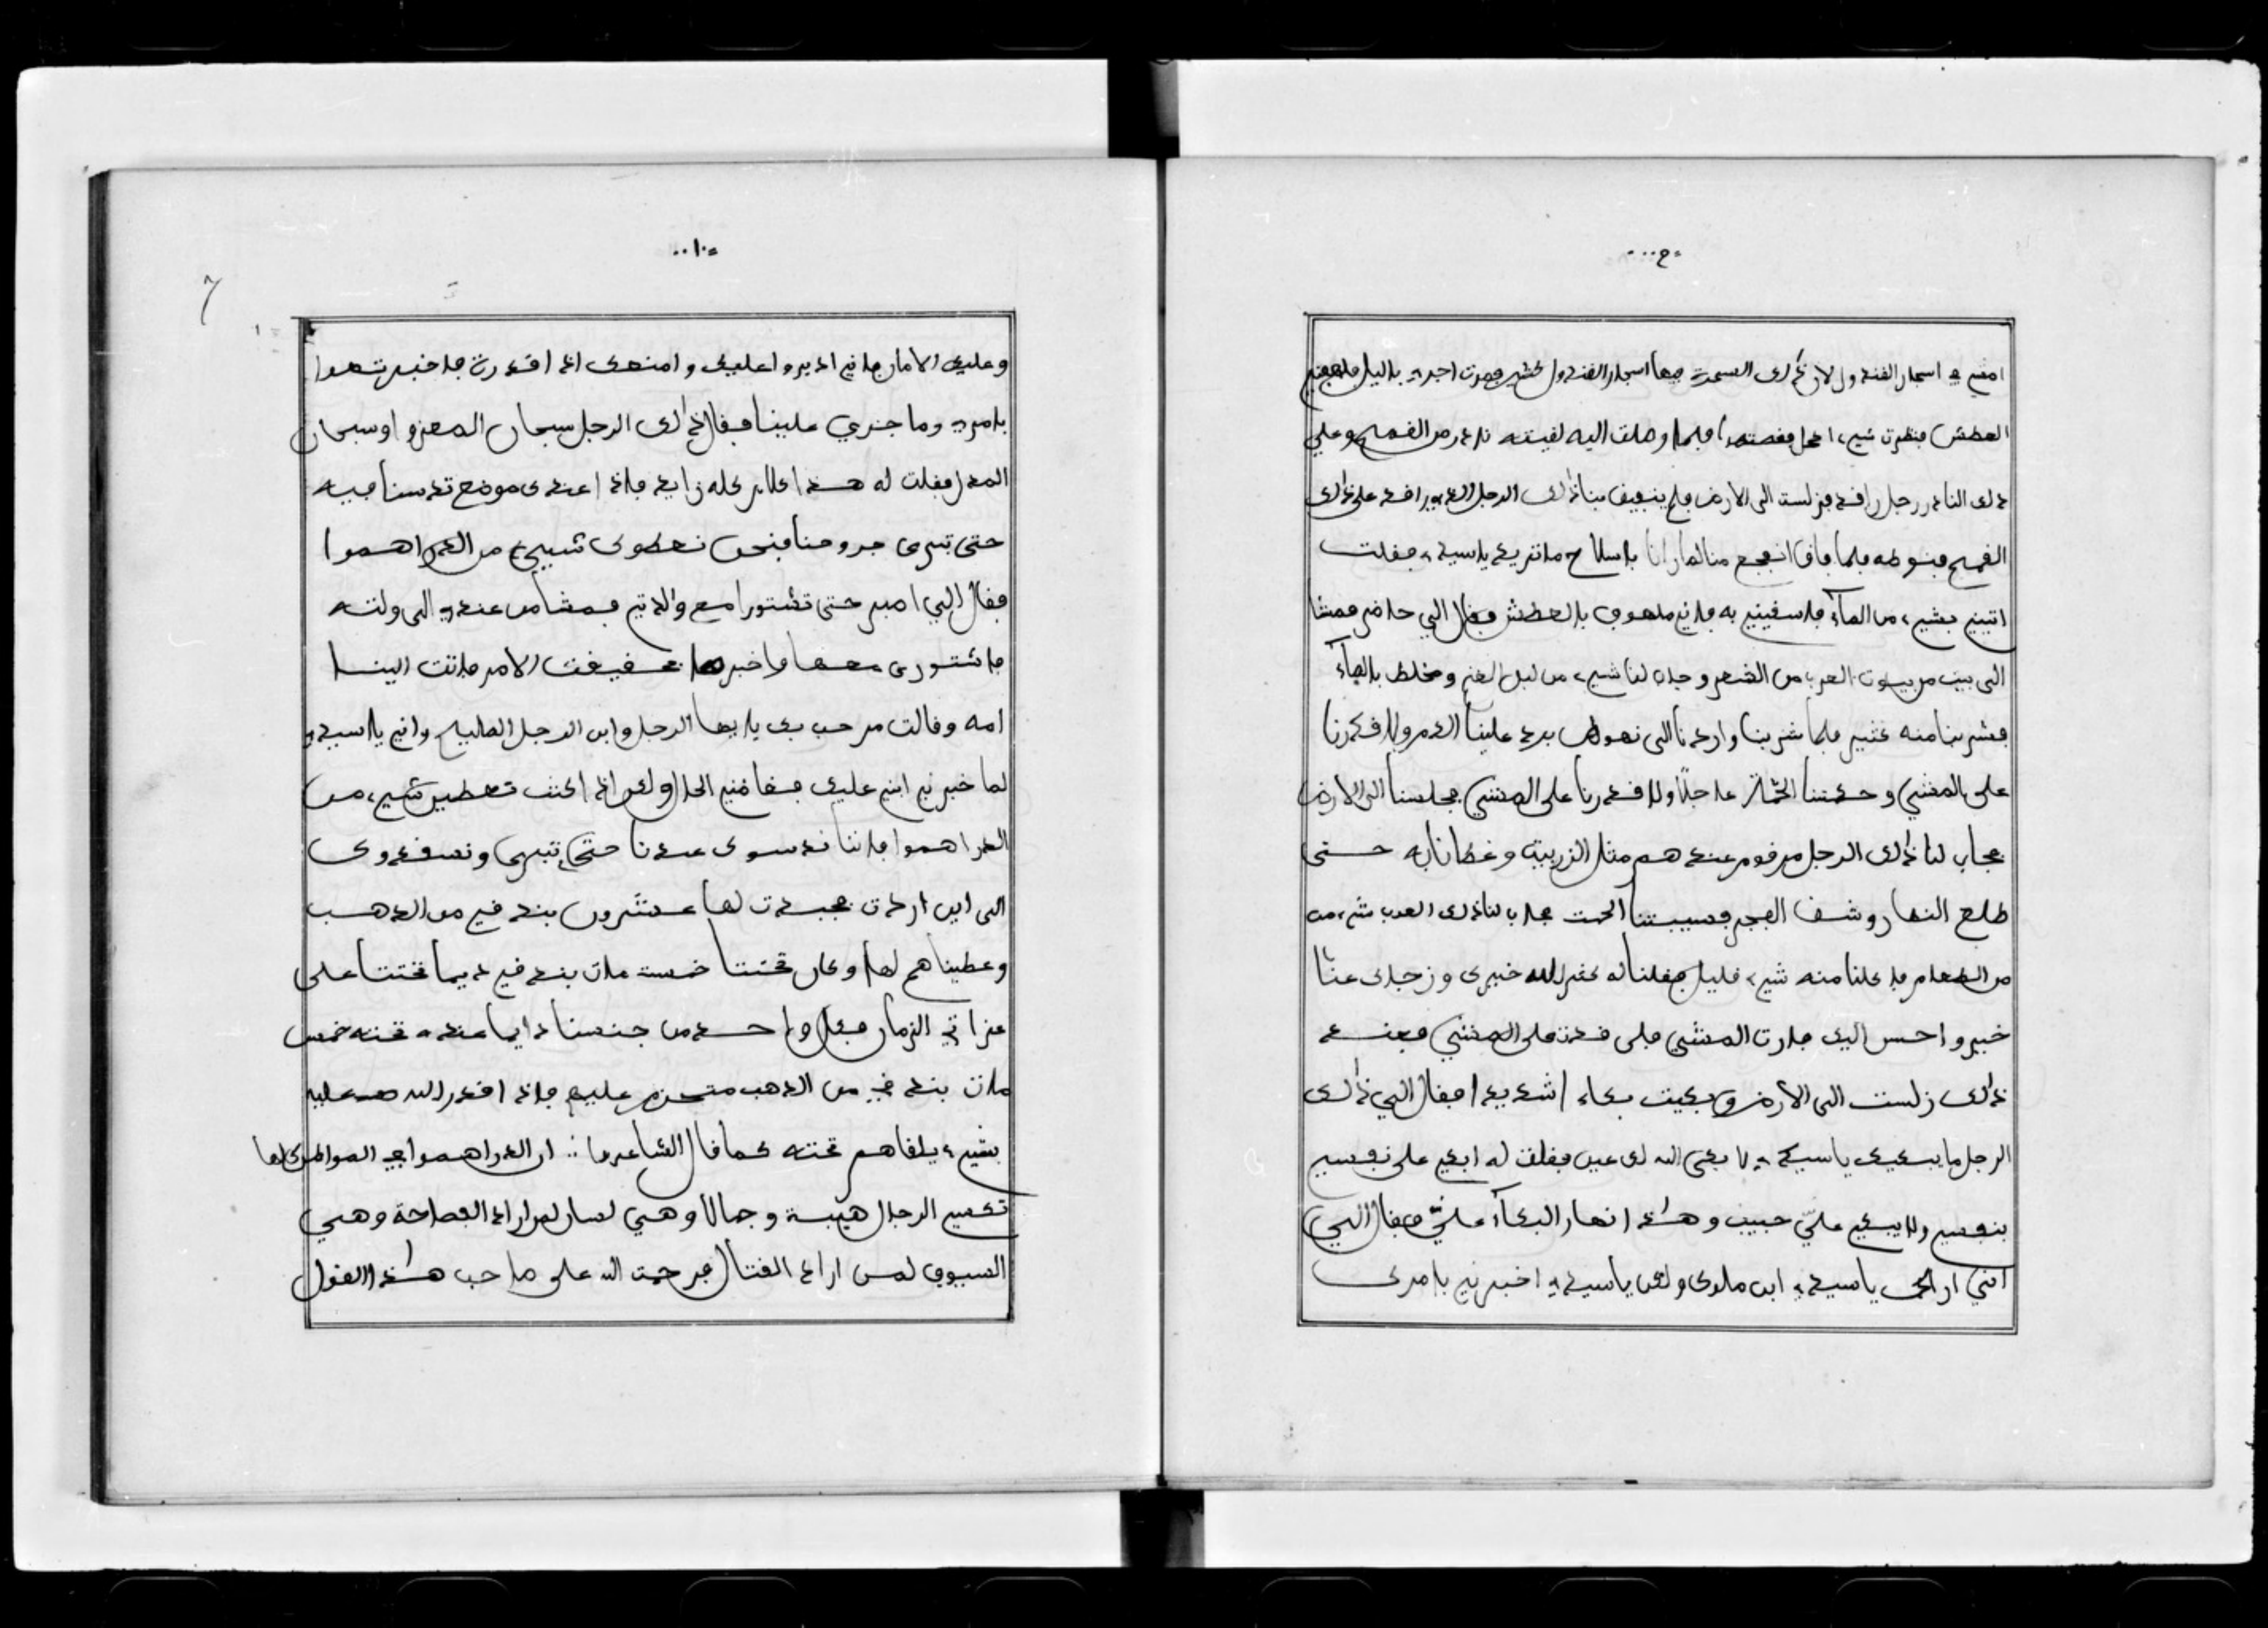 امشي في اسجار الفندول لان ذالك السمرة فيها اسجار الفندول كثير فصرت اجري بالليل فلهفني
العطش فنظرت شيء اكحل فقصته فلما وصلت اليه لقيته نادر من القمح وعلي
ذلك النادر رجل راقد فنزلست الى الارض فلم ينفيق بنا ذالك الرجل الذي راقد على ذالك
القمح فنوطه فلما فاق انفجع منا لما رانا بالسلاح ما تريد ياسيدي فقلت
اتيني بشيء من المآء فاسقيني به فاني ملهوف بالعطش فقال الي حاضر فمشا
الى بيت من بيوت العرب من الشعر وجاب لنا شيء من لبن الغنم ومخلط بالمآء
فشربنا منه كثير فلما شربنا واردنا الى نهوظ برد علينا الدم ولا قدرنا
على المشي وحكمتنا الحمات عاجلًا ولا قدرنا على المشي فجلسنا الى الارض
فجاب لنا ذالك الرجل مرقوم عندهم مثل الزربية وغطانا به حتى
طلع النهار وشف الفجر فسيبتنا الحمت فجاب لنا ذالك العرب شيء من
من الطعام فاكلنا منه شيء قليل فقلنا له كثر الله خيرك وزجاك عنا
خير واحسن اليك فارت المشي فلى قدت على المشي فعند
ذالك زلست الى الارض وبكيت بكاء شديدا فقال الي ذالك
الرجل ما يبكيك ياسيدي لا بكى الله لك عين فقلت له ابكي على نفسي
بنفسي ولا يبكي عليّ حبيب وهاذا نهار البكآء عليّ فقال الي
انني اراك ياسيدي ابن ملوك ولكن ياسيدي اخبرني بامرك
وعليك الامان فاني اديروا عليك وامنعك اذا قدرت فاخبرتهوا
بامري وما جزري علينا فقال ذالك الرجل سبحان المعزوا وسبحان
المدل فقلت له هذا الامر كله زايد فاذا عندك موضع تدسنا فيه
حتى تبرى جروحنا فنحن نعطوك شييء من الدراهموا
فقال الي اصبر حتى نشتورا مع والدتي فمشا من عندي الى ولدته
فاشتورى معها واخبرها بحقيقت الامر فاتت الينا
امه وقالت مرحب بك يا ايها الرجل وابن الرجل المليح واني ياسيدي
لما خبرني ابني عليك فغاضني الحال ولكن اذا كنت تعطين شيء من
الدراهموا فاننا ندسوك عندنا حتى تبرى ونسفدوك
الى اين اردت فجبدت لها عشرون بندقي من الذهب
وعطيناهم لها وكان تحتنا خمسة مات بندقي ديما تحتنا على
عزاتي الزمان فكل واحد من جنسنا دايما عنده تحته خمس
مات بندقي من الذهب متحزم عليهم فاذا قدر الله عليه
بشيء يلقاهم تحته كما قال الشاعر .: ان الدراهموا في المواطن كلها
تكسي الرجال هيبة وجمالا وهي لسان لمن اراد الفصاحة وهي
السيوف لمن اراد القتال فرحمت الله على صاحب هاذا القول